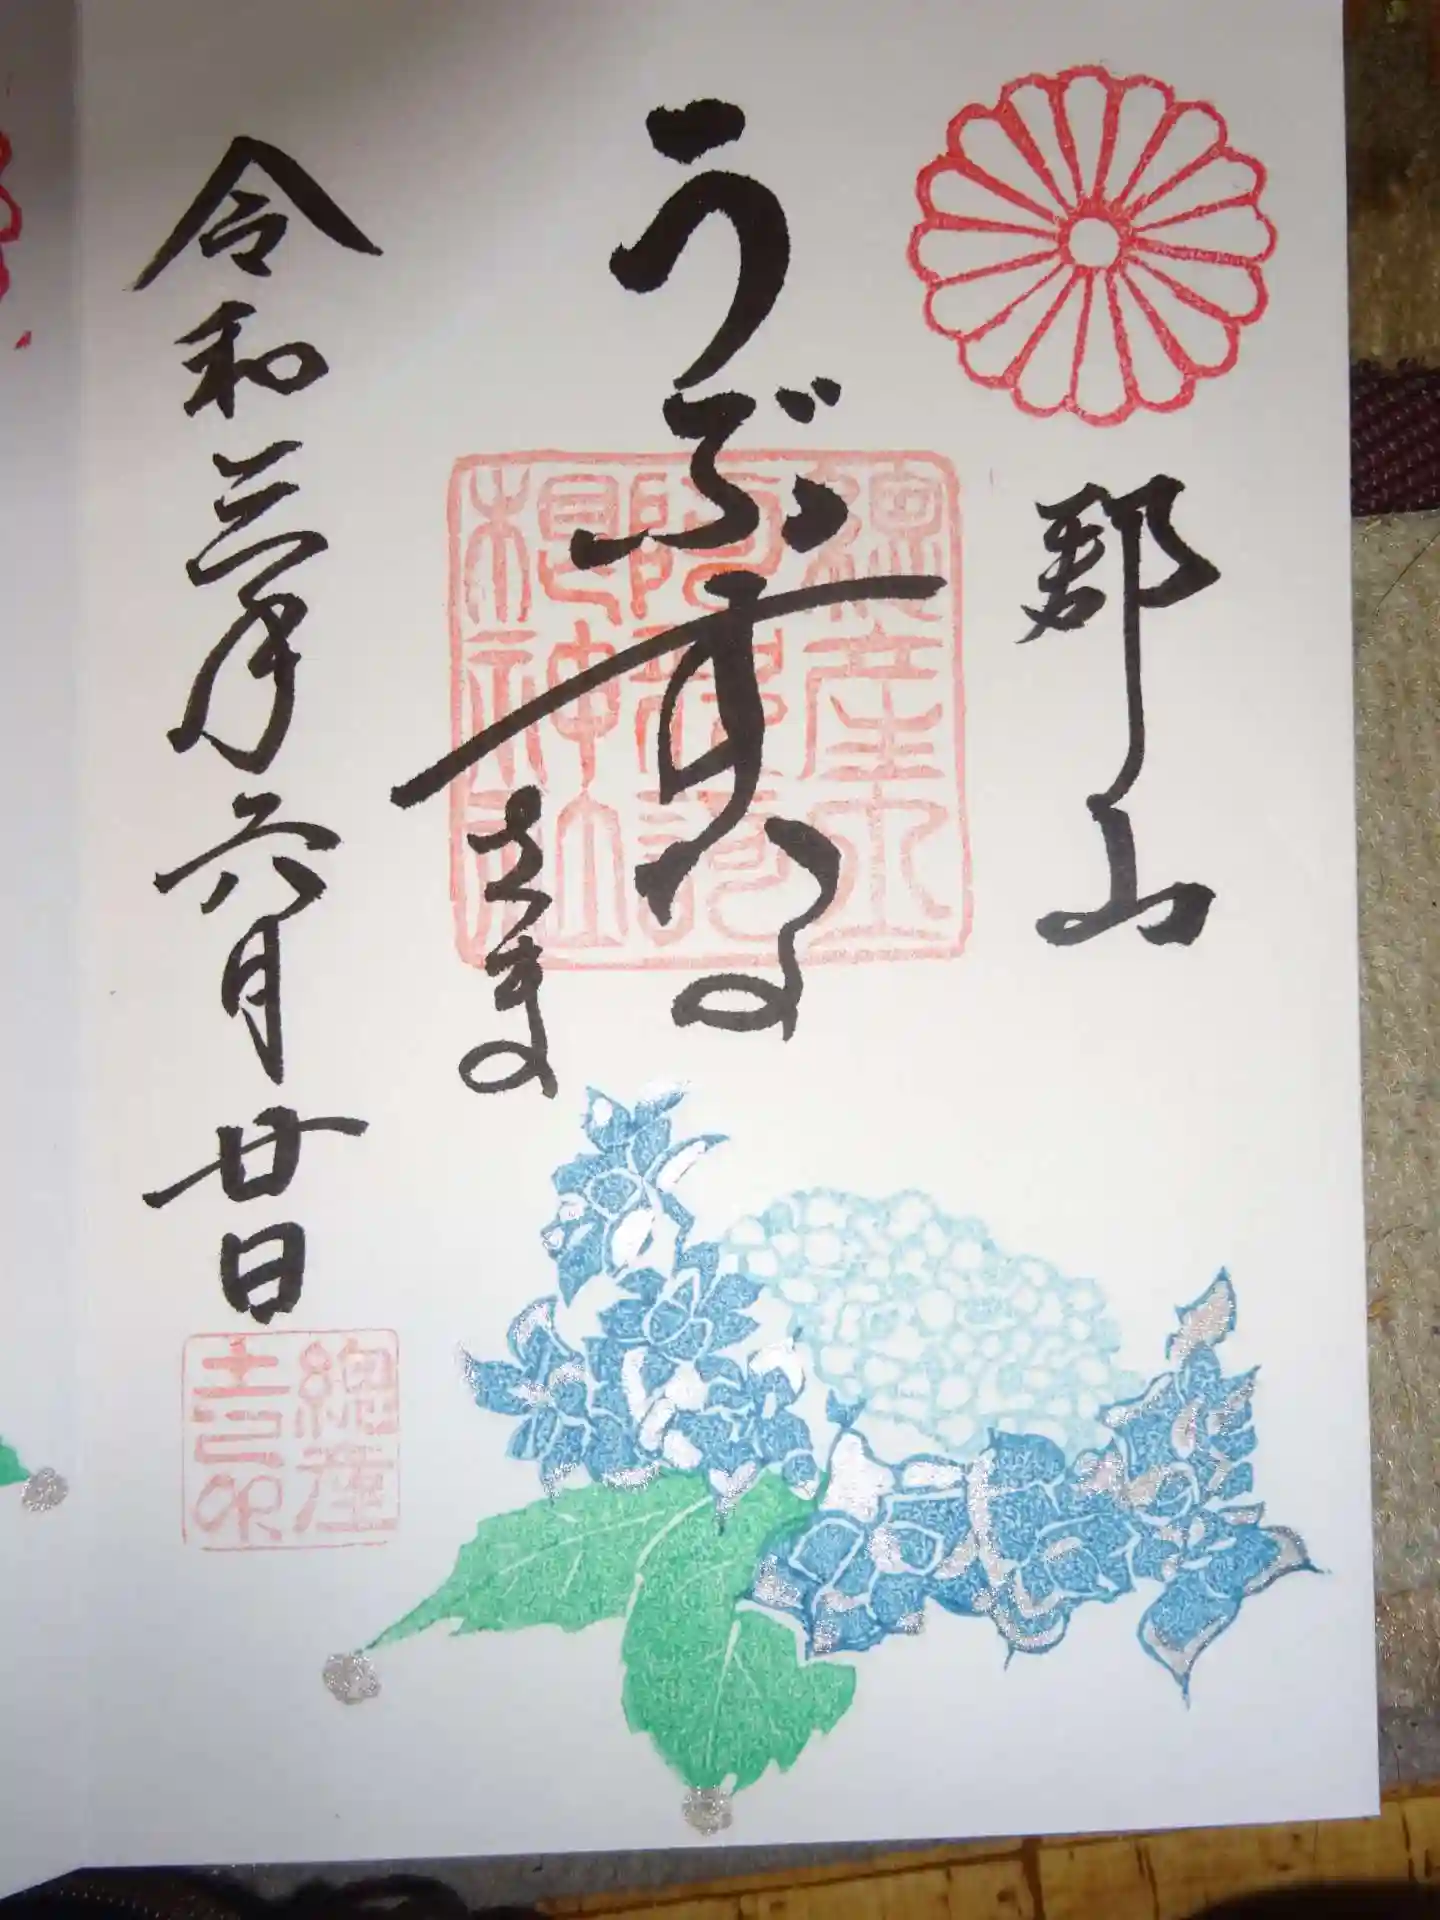 郡山
うぶすな
さま
令和三年六月廿日
總産土
阿邪訶
根神社
總産
土之印